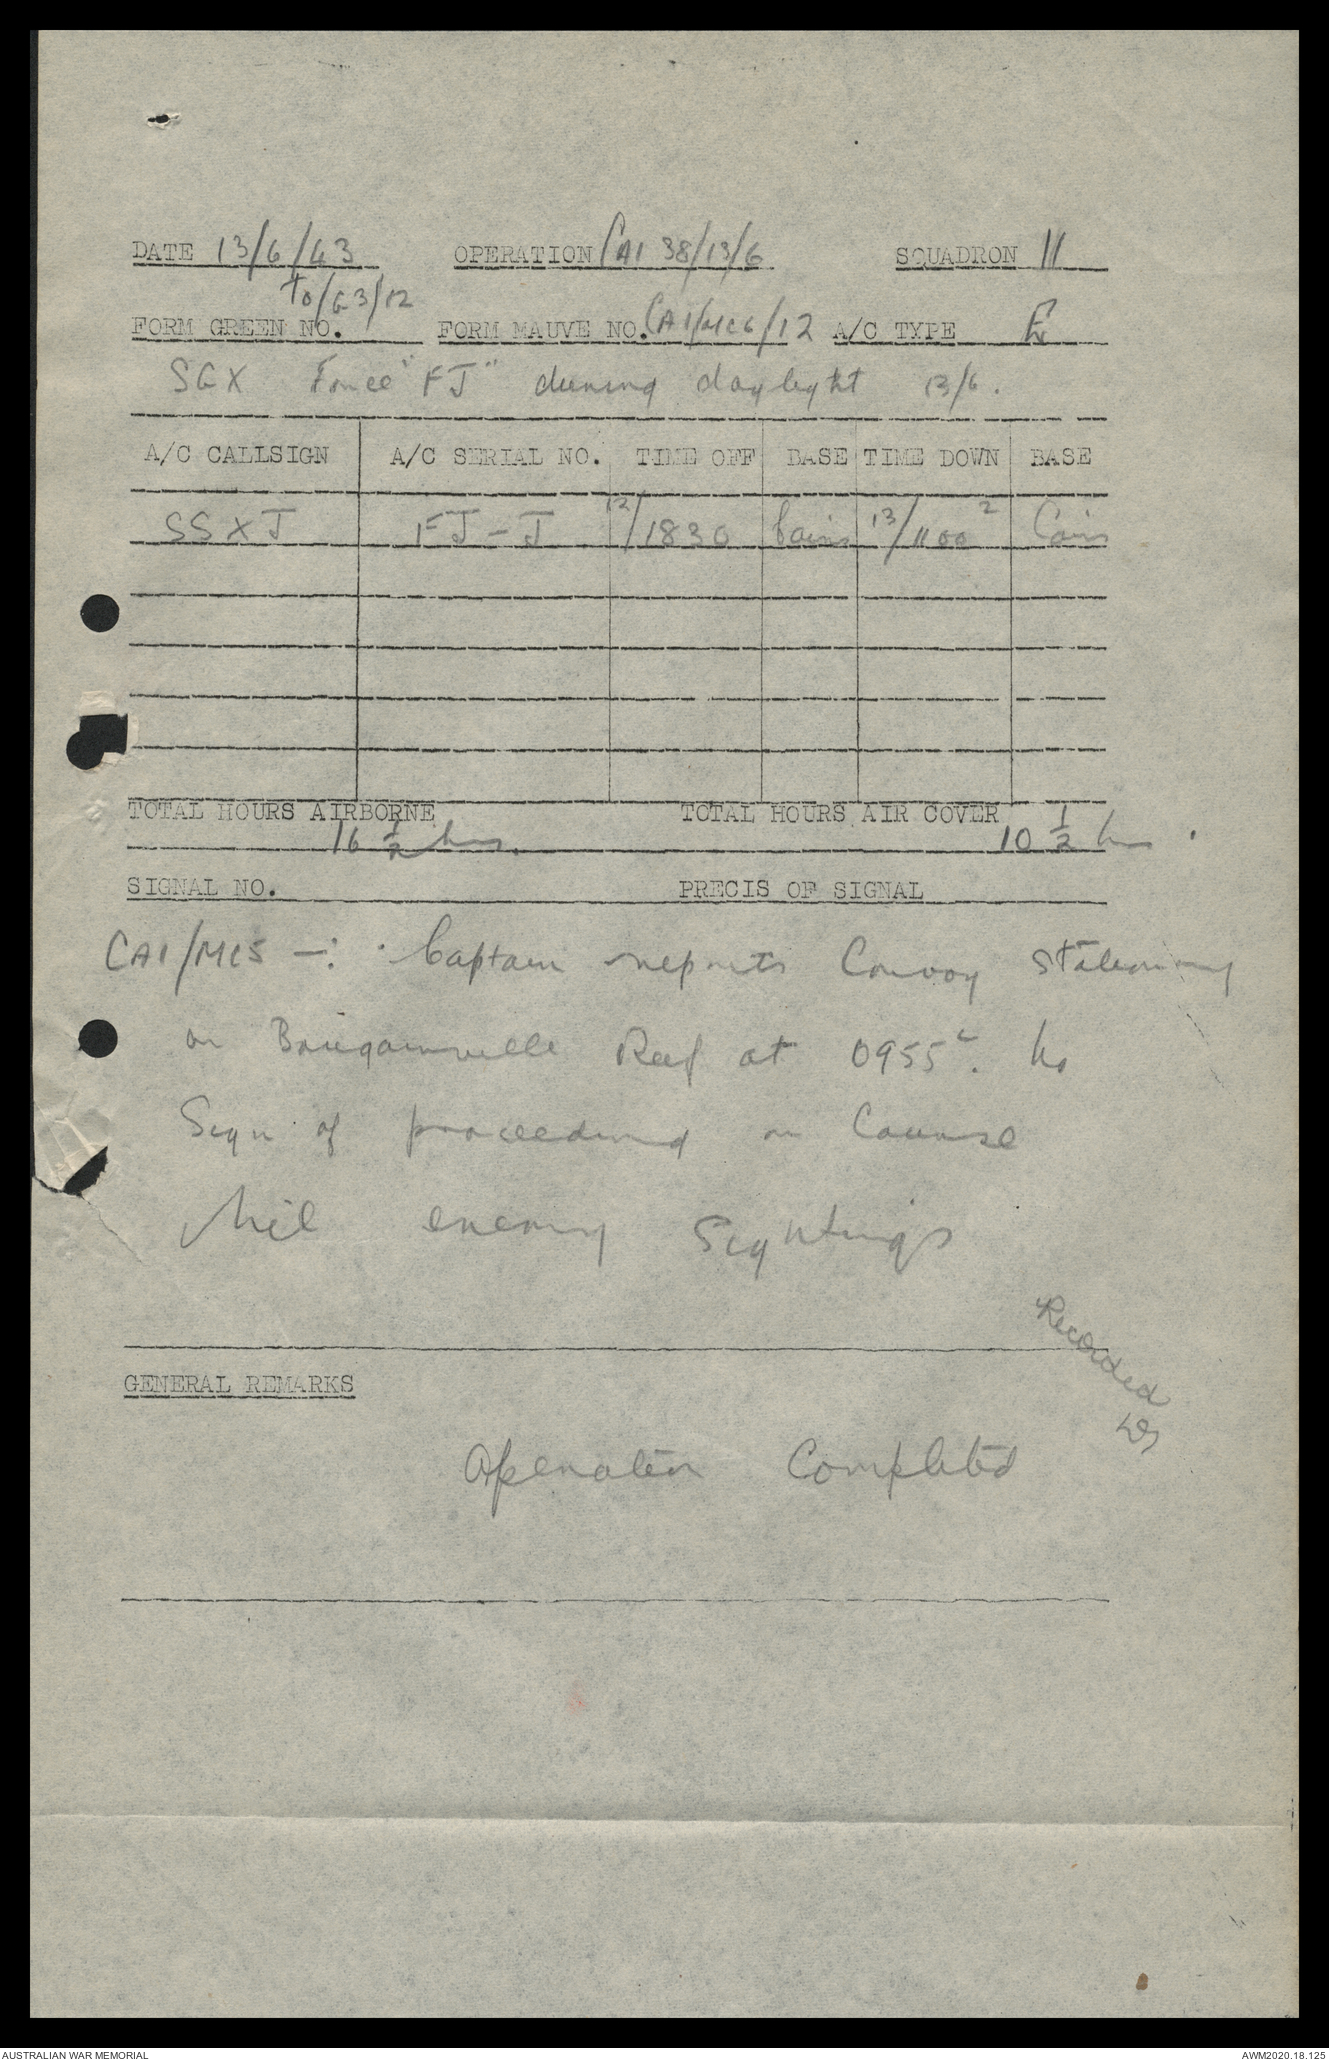 DATE 13/6/43 OPERATION CAI 38/13/6 SQUADRON 11
To/G3/12
FORM GREEN NO. FORM MAUVE NO. CAI/MC6/12 A/C TYPE
SGX Force "FJ" during daylight 13/6.
A/C CALLSIGN A/C SERIAL NO. TIME OFF BASE TIME DOWN BASE
SSXJ FJ-J 12/1830 Cairns 13/1100 Z Cairns
TOTAL HOURS AIRBORNE TOTAL HOURS AIR COVER
16 1/2 hrs. 10 1/2 hrs.
SIGNAL NO. PRECIS OF SIGNAL
CAI/MC5 -: Captain reports Convoy stationary
on Bougainville Reef at 0955Z. No
Sign of proceeding on Course
Nil enemy Sightings
Recorded
GENERAL REMARKS
Operation Completed
AUSTRALIAN WAR MEMORIAL AWM2020.18.125